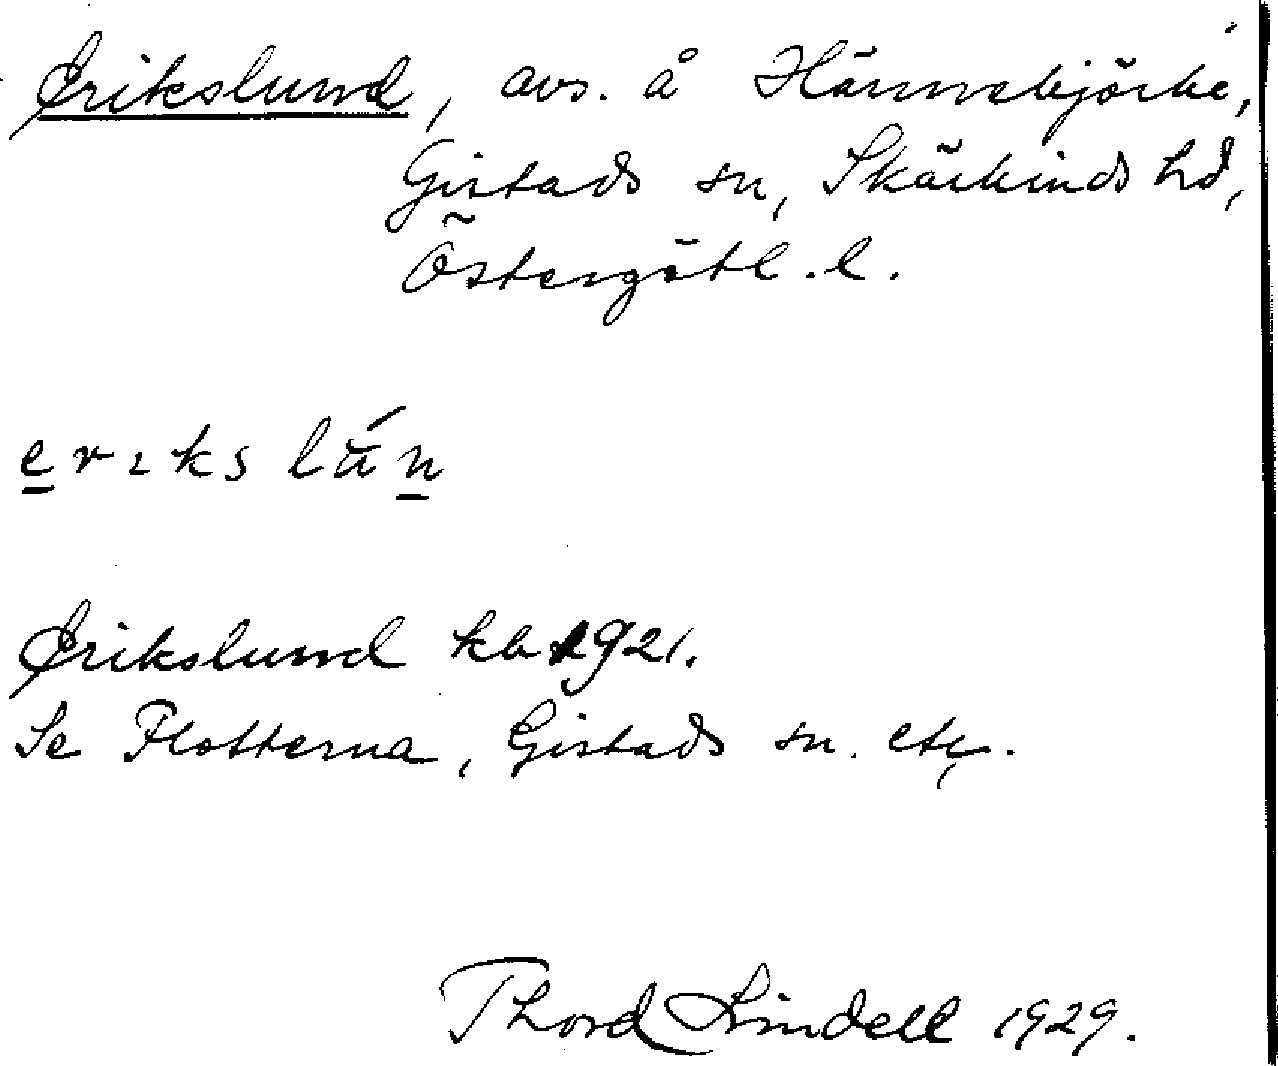 Erikslund, avs. å Hännebjörke,
Gistads sn, Skärkinds hd,
Östergötl. l.
erıkslún
Erikslund kb 1921.
Se Plotterna, Gistads sn. etc.
Thord Lindell 1929.